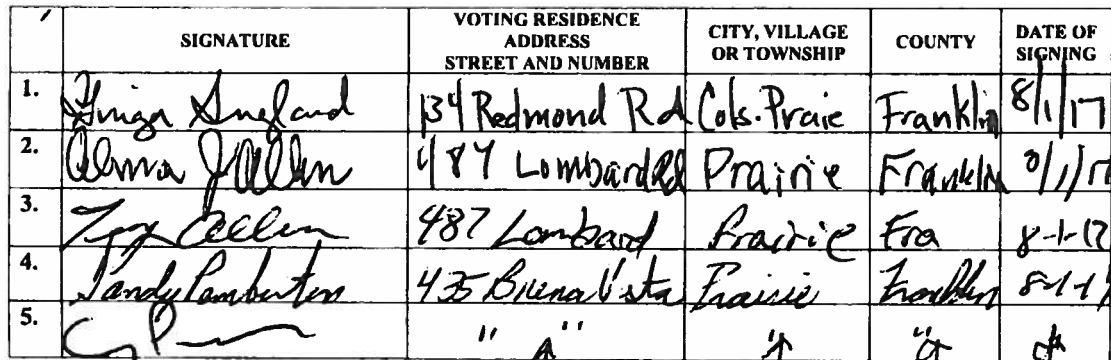 SIGNATURE VOTING RESIDENCE ADDRESS STREET AND NUMBER CITY, VILLAGE OR TOWNSHIP COUNTY DATE OF SIGNING
1. England 134 Redmond Rd Cols. Praie Franklin 8/1/17
2. Alma J Allen 487 Lombard Rd Prairie Franklin 8/1/17
3. Allen 487 Lombard Prairie Fra 8-1-17
4. Sandy Pemberton 435 Buena Vista Prairie Franklin 8-1-17
5. " " " "